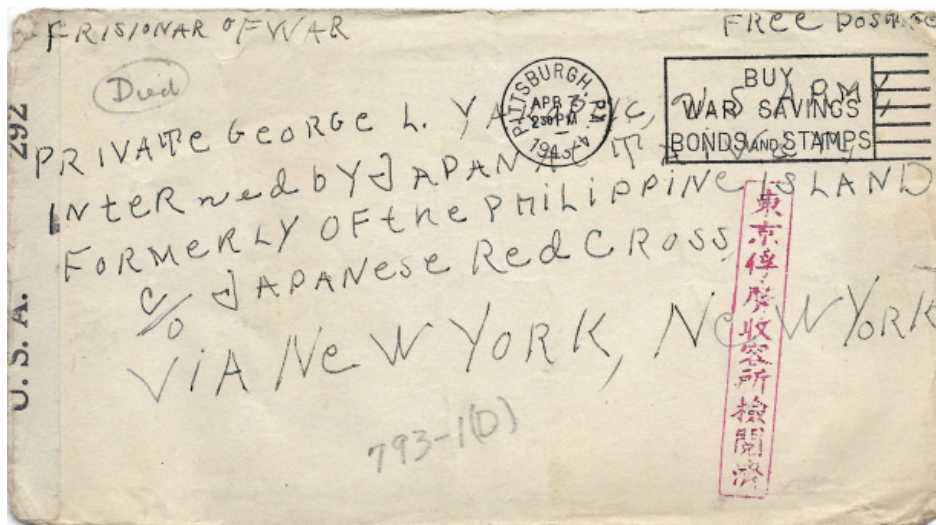 FRISIONAR OF WAR
FREE POSTAGE
Died
PITTSBURGH, PA. 4
APR 7
230 PM
1943
BUY
WAR SAVINGS
BONDS AND STAMPS
PRIVATE GEORGE L. U.S. ARMY
INTERNED BY JAPAN
FORMERLY OF the PHILIPPINE ISLAND
C/O JAPANESE Red CROSS,
VIA NEW YORK, NEW YORK
793-1(D)
U.S.A. 292
東京俘虜收容所檢閲濟